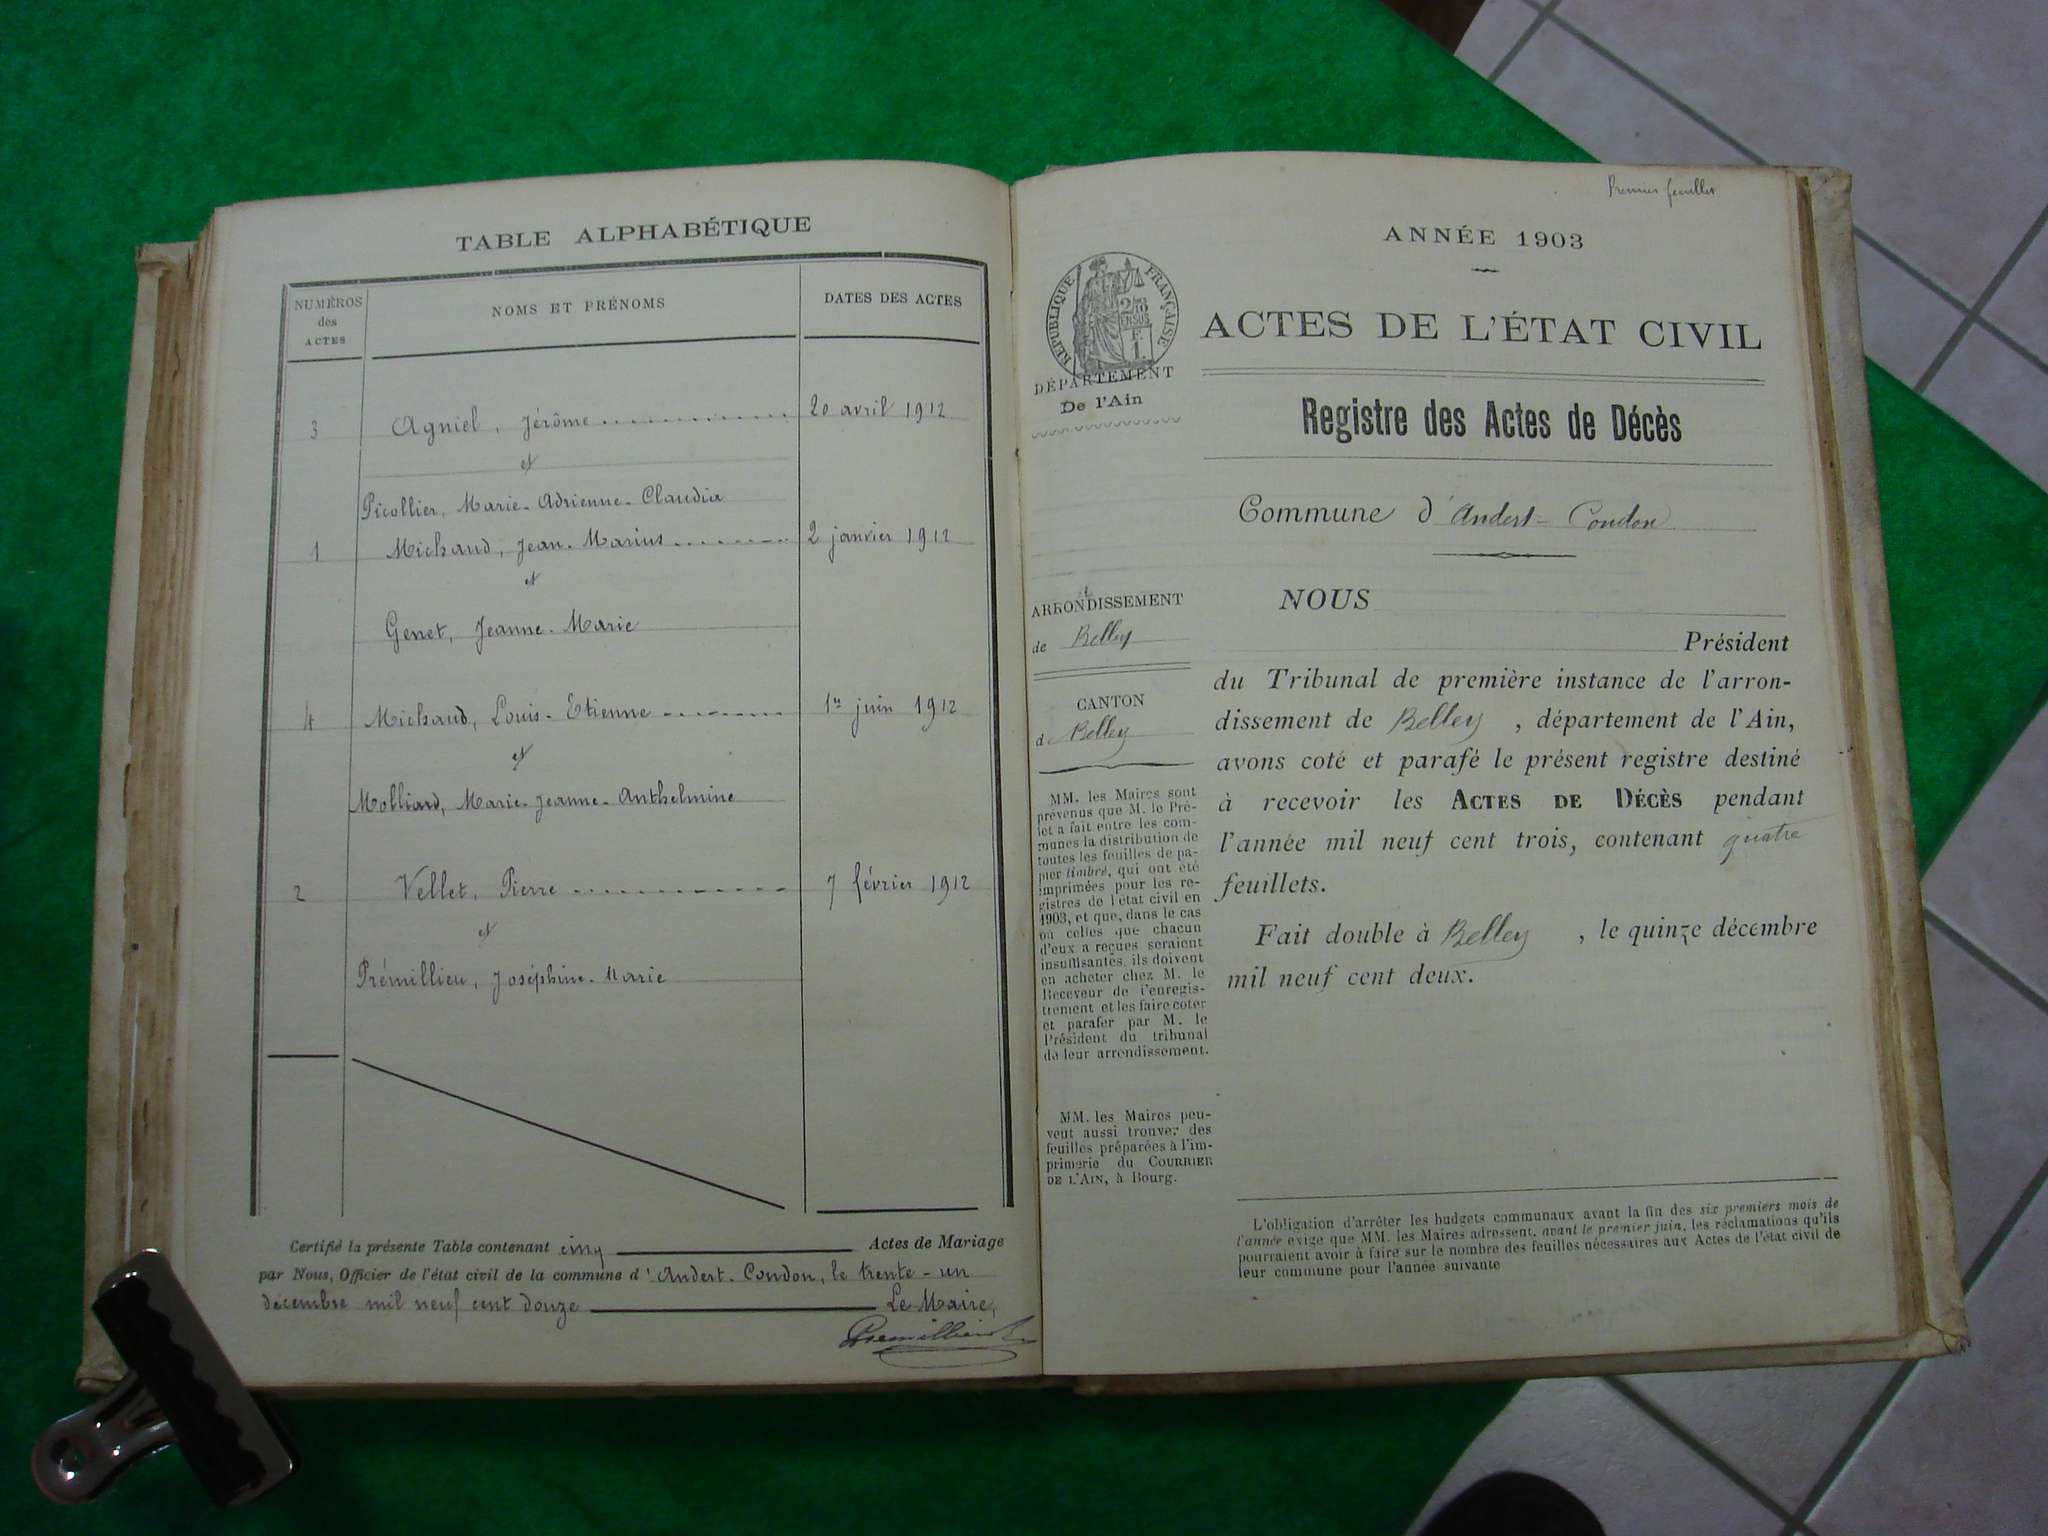 TABLE ALPHABÉTIQUE
NUMÉROS
des
ACTES
NOMS ET PRÉNOMS
DATES DES ACTES
3 Agniel, Jérôme 20 avril 1912
et
Picollier, Marie-Adrienne-Claudia
1 Michaud, Jean-Marius 2 janvier 1912
et
Genet, Jeanne-Marie
4 Michaud, Louis-Etienne 1er juin 1912
et
Molliard, Marie-Jeanne-Anthelmine
2 Vellet, Pierre 7 février 1912
et
Prémillieu, Joséphine-Marie
Certifié la présente Table contenant cinq Actes de Mariage
par Nous, Officier de l'état civil de la commune d'Andert-Condon, le trente-un
décembre mil neuf cent douze Le Maire,
Premier feuillet
ANNÉE 1903
RÉPUBLIQUE FRANÇAISE
DÉPARTEMENT
De l'Ain
ACTES DE L'ÉTAT CIVIL
Registre des Actes de Décès
Commune d'Andert-Condon
ARRONDISSEMENT
de Belley
CANTON
de Belley
MM. les Maires sont
prévenus que M. le Pré-
fet a fait entre les com-
munes la distribution de
toutes les feuilles de pa-
pier timbré, qui ont été
imprimées pour les re-
gistres de l'état civil en
1903, et que, dans le cas
où celles que chacun
d'eux a reçues seraient
insuffisantes, ils doivent
en acheter chez M. le
Receveur de l'enregis-
trement et les faire coter
et parafer par M. le
Président du tribunal
de leur arrondissement.
MM. les Maires peu-
vent aussi trouver des
feuilles préparées à l'im-
primerie du COURRIER
DE L'AIN, à Bourg.
NOUS
Président
du Tribunal de première instance de l'arron-
dissement de Belley, département de l'Ain,
avons coté et parafé le présent registre destiné
à recevoir les ACTES DE DÉCÈS pendant
l'année mil neuf cent trois, contenant quatre
feuillets.
Fait double à Belley, le quinze décembre
mil neuf cent deux.
L'obligation d'arrêter les budgets communaux avant la fin des six premiers mois de
l'année exige que MM. les Maires adressent, avant le premier juin, les réclamations qu'ils
pourraient avoir à faire sur le nombre des feuilles nécessaires aux Actes de l'état civil de
leur commune pour l'année suivante